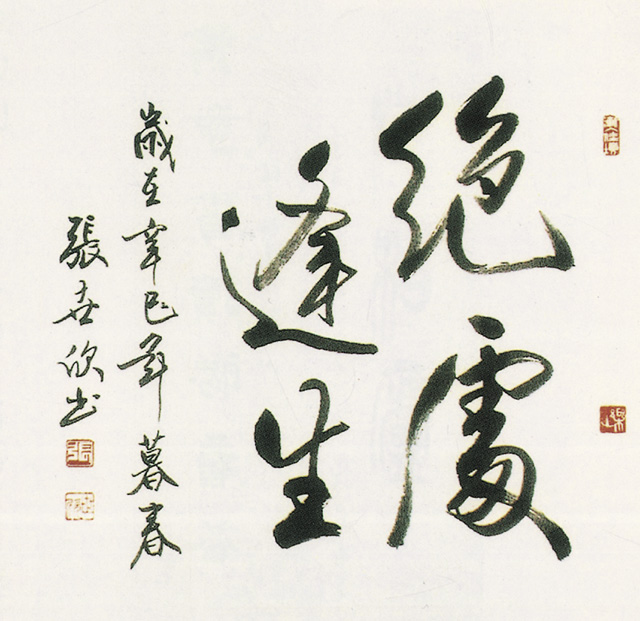 絕處
逢生
歲在辛巳年暮春
張世欣书
張